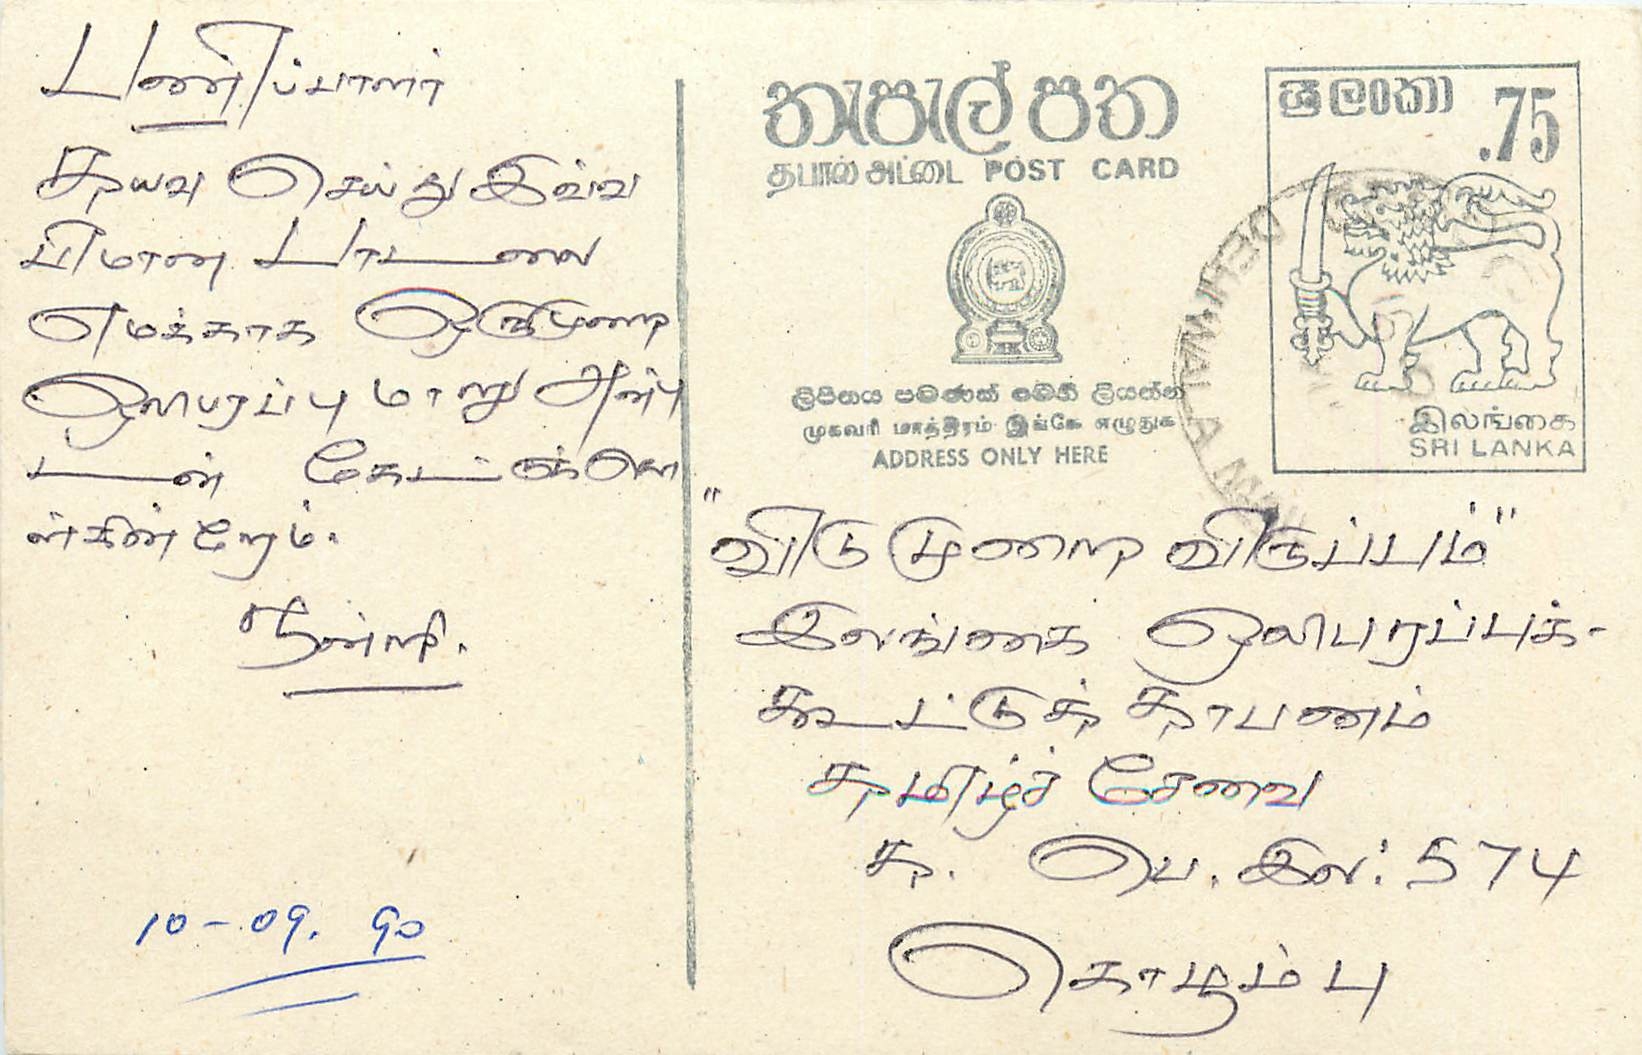 பணிப்பாளர்
தயவு செய்து இவ்வ
பிமான பாடலை
எமக்காக ஒருமுறை
ஒலிபரப்பு மாறு அன்பு
டன் கேட்டுக்கொ
ள்கின்றோம்.
நன்றி.
10-09. 90
තැපැල් පත
தபால் அட்டை POST CARD
ලිපිනය පමණක් මෙහි ලියන්න
முகவரி மாத்திரம் இங்கே எழுதுக
ADDRESS ONLY HERE
ශ්‍රී ලංකා .75
இலங்கை
SRI LANKA
DEHIWALA
"விடுமுறை விருப்பம்"
இலங்கை ஒலிபரப்புக்-
கூட்டுத் தாபனம்
தமிழ்ச் சேவை
த. பெ. இல: 574
கொழும்பு